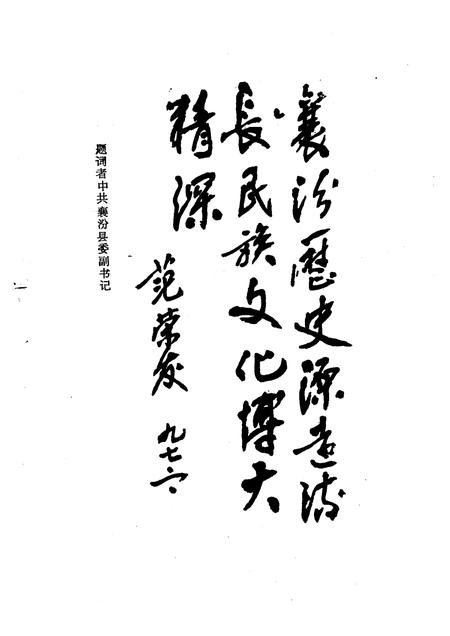 襄汾歷史源遠流
長民族文化博大
精深
范荣友 九七、六、
题词者中共襄汾县委副书记